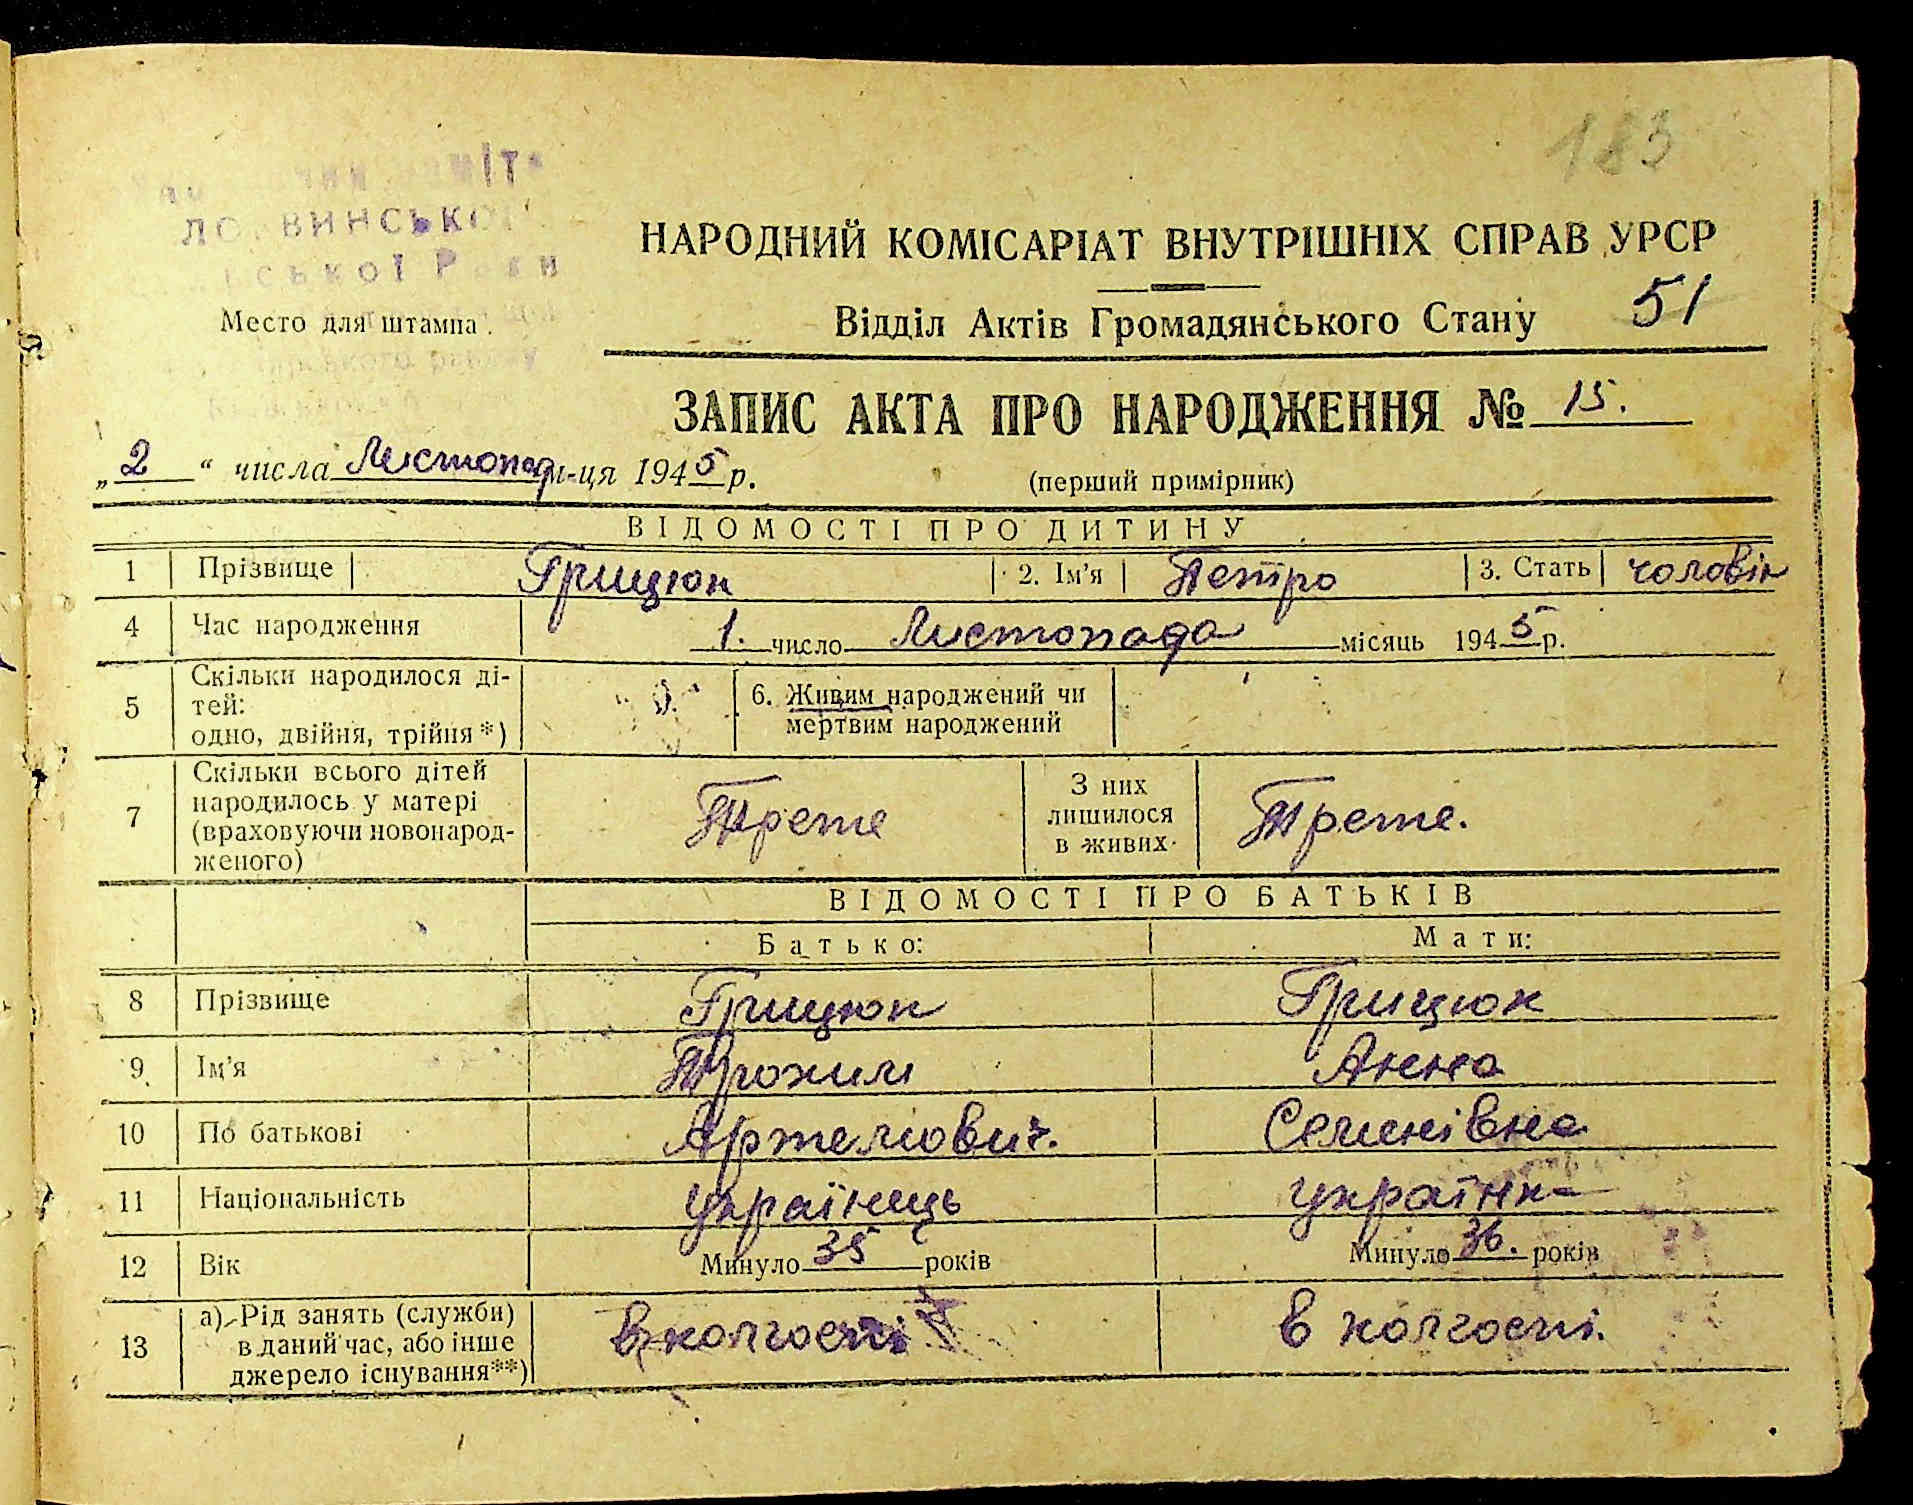 183
НАРОДНИЙ КОМІСАРІАТ ВНУТРІШНІХ СПРАВ УРСР
Место для штампа.
Відділ Актів Громадянського Стану 51
ЗАПИС АКТА ПРО НАРОДЖЕННЯ № 15.
„2“ числа Листопад м-ця 1945 р.
(перший примірник)
ВІДОМОСТІ ПРО ДИТИНУ
1 Прізвище Грицюк 2. Ім'я Петро 3. Стать чоловік
4 Час народження 1. число Листопада місяць 1945 р.
5 Скільки народилося ді-
тей:
одно, двійня, трійня*)
6. Живим народжений чи
мертвим народжений
7 Скільки всього дітей
народилось у матері
(враховуючи новонарод-
женого)
Трете
З них
лишилося
в живих
Трете.
ВІДОМОСТІ ПРО БАТЬКІВ
Батько: Мати:
8 Прізвище Грицюк Грицюк
9 Ім'я Трохим Анна
10 По батькові Артемович. Семенівна
11 Національність українець українк
12 Вік Минуло 35 років Минуло 36. років
13 а) Рід занять (служби)
в даний час, або інше
джерело існування**)
в колгоспі в колгоспі.